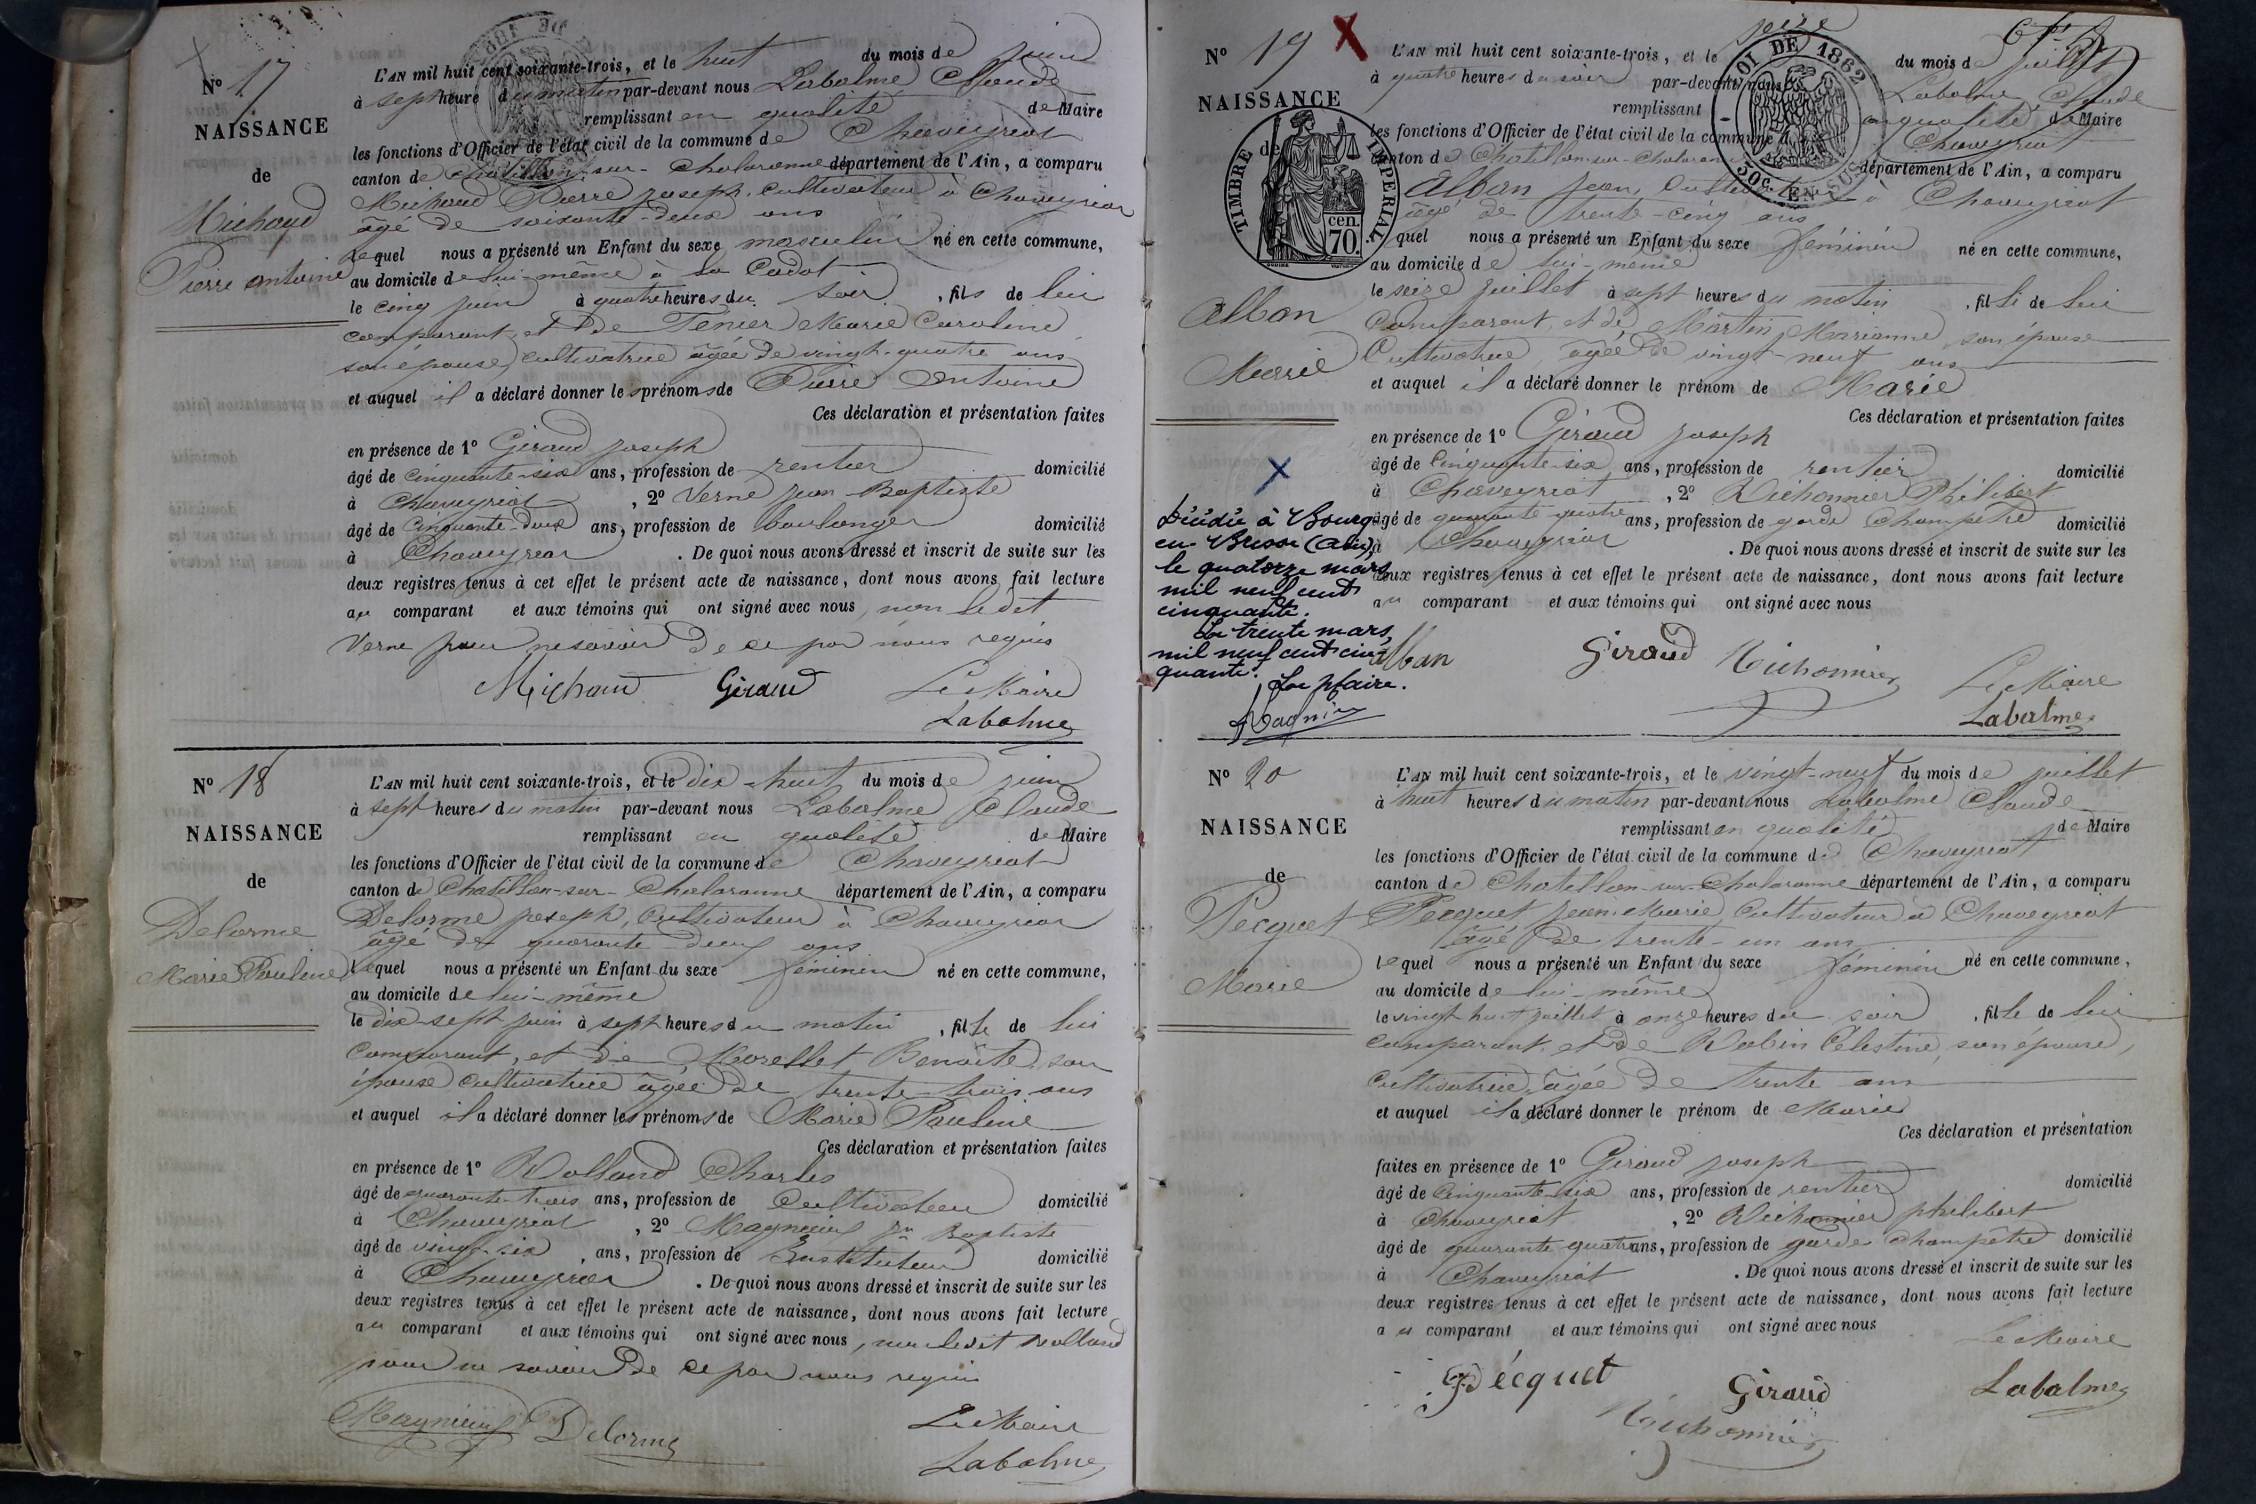 N° 17
NAISSANCE
de
Michaud
Pierre Antoine
L'AN mil huit cent soixante-trois, et le huit du mois de juin
à sept heure du matin par-devant nous Labalme Claude
remplissant en qualité de Maire
les fonctions d'Officier de l'état civil de la commune de Chaveyriat
canton de Chatillon-sur-Chalaronne département de l'Ain, a comparu
Michaud Pierre Joseph, cultivateur à Chaveyriat
âgé de soixante-deux ans
lequel nous a présenté un Enfant du sexe masculin né en cette commune,
au domicile de lui-même à la Cadot
le cinq juin à quatre heures du soir, fils de lui
comparant, et de Ténier Marie Caroline
son épouse, cultivatrice âgée de vingt-quatre ans
et auquel il a déclaré donner les prénoms de Pierre Antoine
Ces déclaration et présentation faites
en présence de 1° Giraud Joseph
âgé de cinquante-six ans, profession de rentier domicilié
à Chaveyriat, 2° Verne Jean-Baptiste
âgé de cinquante-deux ans, profession de boulanger domicilié
à Chaveyriat. De quoi nous avons dressé et inscrit de suite sur les
deux registres tenus à cet effet le présent acte de naissance, dont nous avons fait lecture
au comparant et aux témoins qui ont signé avec nous, non ledit
Verne pour ne savoir de ce par nous requis
Michaud Giraud Le Maire
Labalme
N° 18
NAISSANCE
de
Delorme
Marie Pauline
L'AN mil huit cent soixante-trois, et le dix-huit du mois de juin
à sept heures du matin par-devant nous Labalme Claude
remplissant en qualité de Maire
les fonctions d'Officier de l'état civil de la commune de Chaveyriat
canton de Chatillon-sur-Chalaronne département de l'Ain, a comparu
Delorme Joseph, cultivateur à Chaveyriat
âgé de quarante-deux ans
lequel nous a présenté un Enfant du sexe féminin né en cette commune,
au domicile de lui-même
le dix-sept juin à sept heures du matin, fille de lui
comparant, et de Morellet Benoîte, son
épouse cultivatrice âgée de trente-trois ans
et auquel il a déclaré donner les prénoms de Marie Pauline
Ces déclaration et présentation faites
en présence de 1° Rolland Charles
âgé de quarante-trois ans, profession de cultivateur domicilié
à Chaveyriat, 2° Magnieux Jn Baptiste
âgé de vingt-six ans, profession de Instituteur domicilié
à Chaveyriat. De quoi nous avons dressé et inscrit de suite sur les
deux registres tenus à cet effet le présent acte de naissance, dont nous avons fait lecture
au comparant et aux témoins qui ont signé avec nous, non ledit Rolland
pour ne savoir de ce par nous requis
Magnieux Delorme Le Maire
Labalme
N° 19 X
NAISSANCE
de
TIMBRE IMPERIAL
70 cen.
Alban
Marie
X
Décédée à Bourg-
en-Bresse (Ain)
le quatorze mars
mil neuf cent
cinquante.
Le trente mars,
mil neuf cent cin-
quante.
Le Maire.
L'AN mil huit cent soixante-trois, et le seize du mois de juillet
à quatre heures du soir par-devant nous Labalme Claude
remplissant en qualité de Maire
les fonctions d'Officier de l'état civil de la commune de Chaveyriat
canton de Chatillon-sur-Chalaronne département de l'Ain, a comparu
LOI DE 1862
50c. EN SUS
Alban Jean, cultivateur à Chaveyriat
âgé de trente-cinq ans
lequel nous a présenté un Enfant du sexe féminin né en cette commune,
au domicile de lui-même
le seize juillet à sept heures du matin, fille de lui
comparant, et de Martin Marianne, son épouse
cultivatrice, âgée de vingt-neuf ans
et auquel il a déclaré donner le prénom de Marie
Ces déclaration et présentation faites
en présence de 1° Giraud Joseph
âgé de cinquante-six ans, profession de rentier domicilié
à Chaveyriat, 2° Michonnier Philibert
âgé de quarante quatre ans, profession de garde champêtre domicilié
à Chaveyriat. De quoi nous avons dressé et inscrit de suite sur les
deux registres tenus à cet effet le présent acte de naissance, dont nous avons fait lecture
au comparant et aux témoins qui ont signé avec nous
alban Giraud Michonnier Le Maire
Labalme
N° 20
NAISSANCE
de
Pecquet
Marie
L'AN mil huit cent soixante-trois, et le vingt-neuf du mois de juillet
à huit heures du matin par-devant nous Labalme Claude
remplissant en qualité de Maire
les fonctions d'Officier de l'état civil de la commune de Chaveyriat
canton de Chatillon-sur-Chalaronne département de l'Ain, a comparu
Pecquet Jean Marie, cultivateur à Chaveyriat
âgé de trente-un ans
lequel nous a présenté un Enfant du sexe féminin né en cette commune,
au domicile de lui-même
le vingt huit juillet à onze heures du soir, fille de lui
comparant, et de Robin Célestine, son épouse,
cultivatrice, âgée de trente ans
et auquel il a déclaré donner le prénom de Marie
Ces déclaration et présentation
faites en présence de 1° Giraud Joseph
âgé de cinquante-six ans, profession de rentier domicilié
à Chaveyriat, 2° Michonnier Philibert
âgé de quarante-quatre ans, profession de garde champêtre domicilié
à Chaveyriat. De quoi nous avons dressé et inscrit de suite sur les
deux registres tenus à cet effet le présent acte de naissance, dont nous avons fait lecture
au comparant et aux témoins qui ont signé avec nous
Le Maire
Pécquet Giraud Labalme
Michonnier